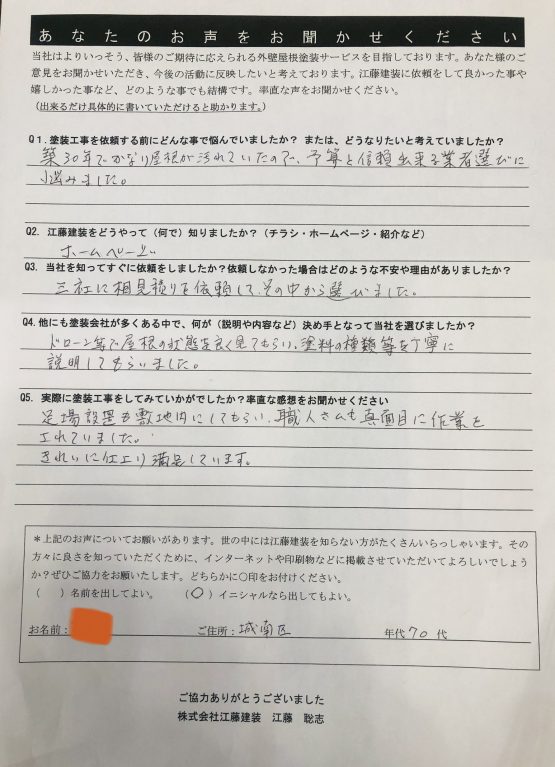 あなたのお声をお聞かせください
当社はよりいっそう、皆様のご期待に応えられる外壁屋根塗装サービスを目指しております。あなた様のご
意見をお聞かせいただき、今後の活動に反映したいと考えております。江藤建装に依頼をして良かった事や
嬉しかった事など、どのような事でも結構です。率直な声をお聞かせください。
（出来るだけ具体的に書いていただけると助かります。）
Q1.塗装工事を依頼する前にどんな事で悩んでいましたか？ または、どうなりたいと考えていましたか？
築30年でかなり屋根が汚れていたので、予算と信頼出来る業者選びに
悩みました。
Q2. 江藤建装をどうやって（何で）知りましたか？（チラシ・ホームページ・紹介など）
ホームページ
Q3. 当社を知ってすぐに依頼をしましたか？依頼しなかった場合はどのような不安や理由がありましたか？
三社に相見積りを依頼して、その中から選びました。
Q4.他にも塗装会社が多くある中で、何が（説明や内容など）決め手となって当社を選びましたか？
ドローン等で屋根の状態を良く見てもらい、塗料の種類等を丁寧に
説明してもらいました。
Q5. 実際に塗装工事をしてみていかがでしたか？率直な感想をお聞かせください
足場設置も敷地内にしてもらい、職人さんも真面目に作業を
されていました。
きれいに仕上り満足しています。
＊上記のお声についてお願いがあります。世の中には江藤建装を知らない方がたくさんいらっしゃいます。その
方々に良さを知っていただくために、インターネットや印刷物などに掲載させていただいてよろしいでしょう
か？ぜひご協力をお願いします。どちらかに○印をお付けください。
（ ）名前を出してよい。 （○）イニシャルなら出してもよい。
お名前： ご住所：城南区 年代70代
ご協力ありがとうございました
株式会社江藤建装 江藤 聡志